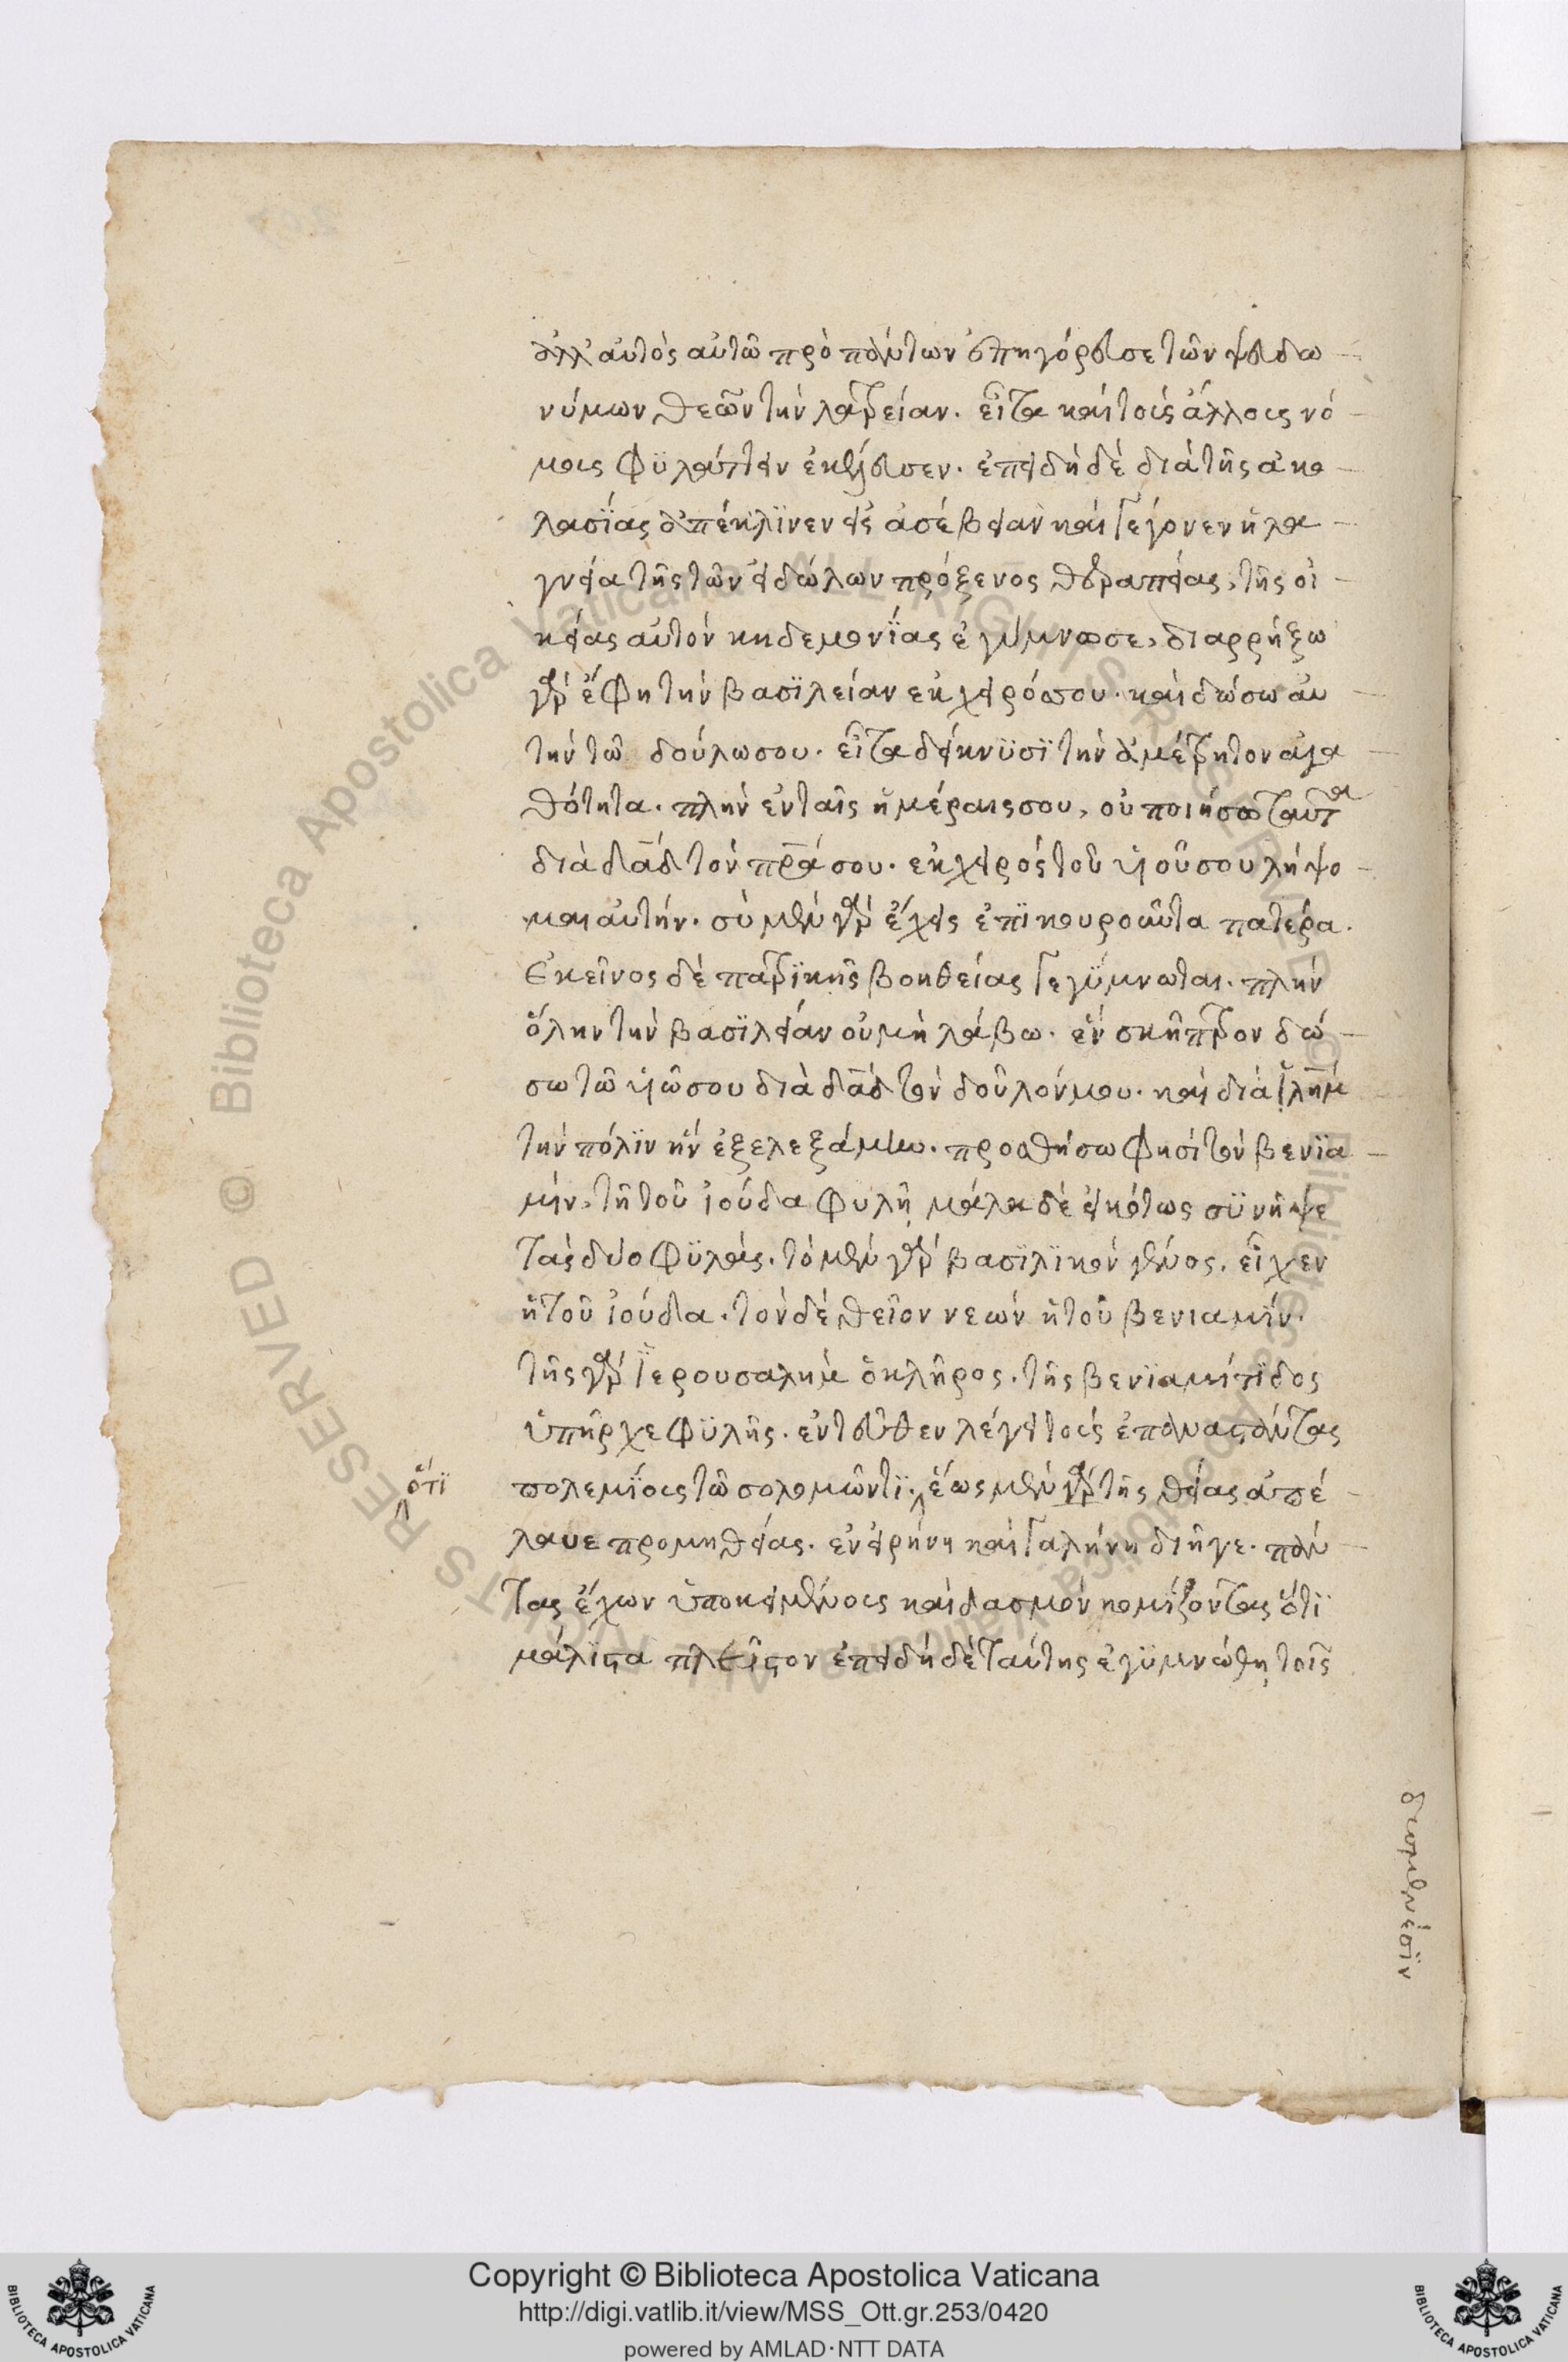 ἀλλ' αὐτὸς αὐτῶ πρὸ πάντων ἀπηγόρευσε τῶν ψευδω
νύμων θεῶν τὴν λατρείαν. εἶτα καὶ τοῖς ἄλλοις νό
μοις φϋλάττειν ἐκέλευσεν. ἐπειδὴ δὲ διὰ τῆς ἀκο
λασΐας ἀπέκλϊνεν εἰς ἀσέβειαν καὶ γέγονεν ἡ λα
γνεία τῆς τῶν εἰδώλων πρόξενος θεραπείας, τῆς οἰ
κείας αὐτὸν κηδεμονΐας ἐγύμνωσε, διαρρήξω
γὰρ ἔφη τὴν βασϊλείαν ἐκ χειρός σου. καὶ δώσω αὐ
τὴν τῶ δούλω σου. εἶτα δείκνϋσϊ τὴν ἀμέτρητον ἀγα
θότητα. πλὴν ἐν ταῖς ἡμέραις σου, οὐ ποιήσω ταῦτα
διὰ δᾱδ τὸν πρ̄α σου. ἐκ χειρὸς τοῦ υἱοῦ σου λήψο
μαι αὐτήν. σὺ μὲν γὰρ ἔχεις ἐπϊκουροῦντα πατέρα.
Ἐκεῖνος δὲ πατρϊκῆς βοηθείας γεγύμνωται. πλὴν
ὅλην τὴν βασϊλείαν οὐ μὴ λάβω. ἓν σκῆπτρον δώ
σω τῶ υἱῶ σου διὰ δᾱδ τὸν δοῦλόν μου. καὶ διὰ ἰλη̄μ
τὴν πόλϊν ἣν ἐξελεξάμην. προσθήσω φησὶ τὸν βενϊα
μὶν, τῇ τοῦ ἰούδα φυλῇ μάλα δὲ εἰκότως σϋνῆψε
τὰς δύο φϋλάς. τὸ μὲν γὰρ βασϊλϊκὸν γένος. εἶχεν
ἡ τοῦ ἰούδα. τὸν δὲ θεῖον νεὼν ἡ τοῦ βενιαμίν.
τῆς γὰρ ἱερουσαλὴμ ὁ κλῆρος. τῆς βενϊαμίτϊδος
ὑπῆρχε φϋλῆς. ἐντεῦθεν λέγει τοὺς ἐπαναστάντας
πολεμΐους τῶ σολομῶντϊ. ἕως μὲν γὰρ τῆς θείας ἀπέ
ὅτϊ
λαυε προμηθείας. ἐν εἰρήνη καὶ γαλήνη διῆγε. πάν
τας ἔχων ὑποκειμένους καὶ δασμὸν κομίζοντας ὅτϊ
μάλϊστα πλεῖστον ἐπειδὴ δὲ ταύτης ἐγϋμνώθη, τοῖς
δυσμενέσϊν
Copyright © Biblioteca Apostolica Vaticana
http://digi.vatlib.it/view/MSS_Ott.gr.253/0420
powered by AMLAD·NTT DATA